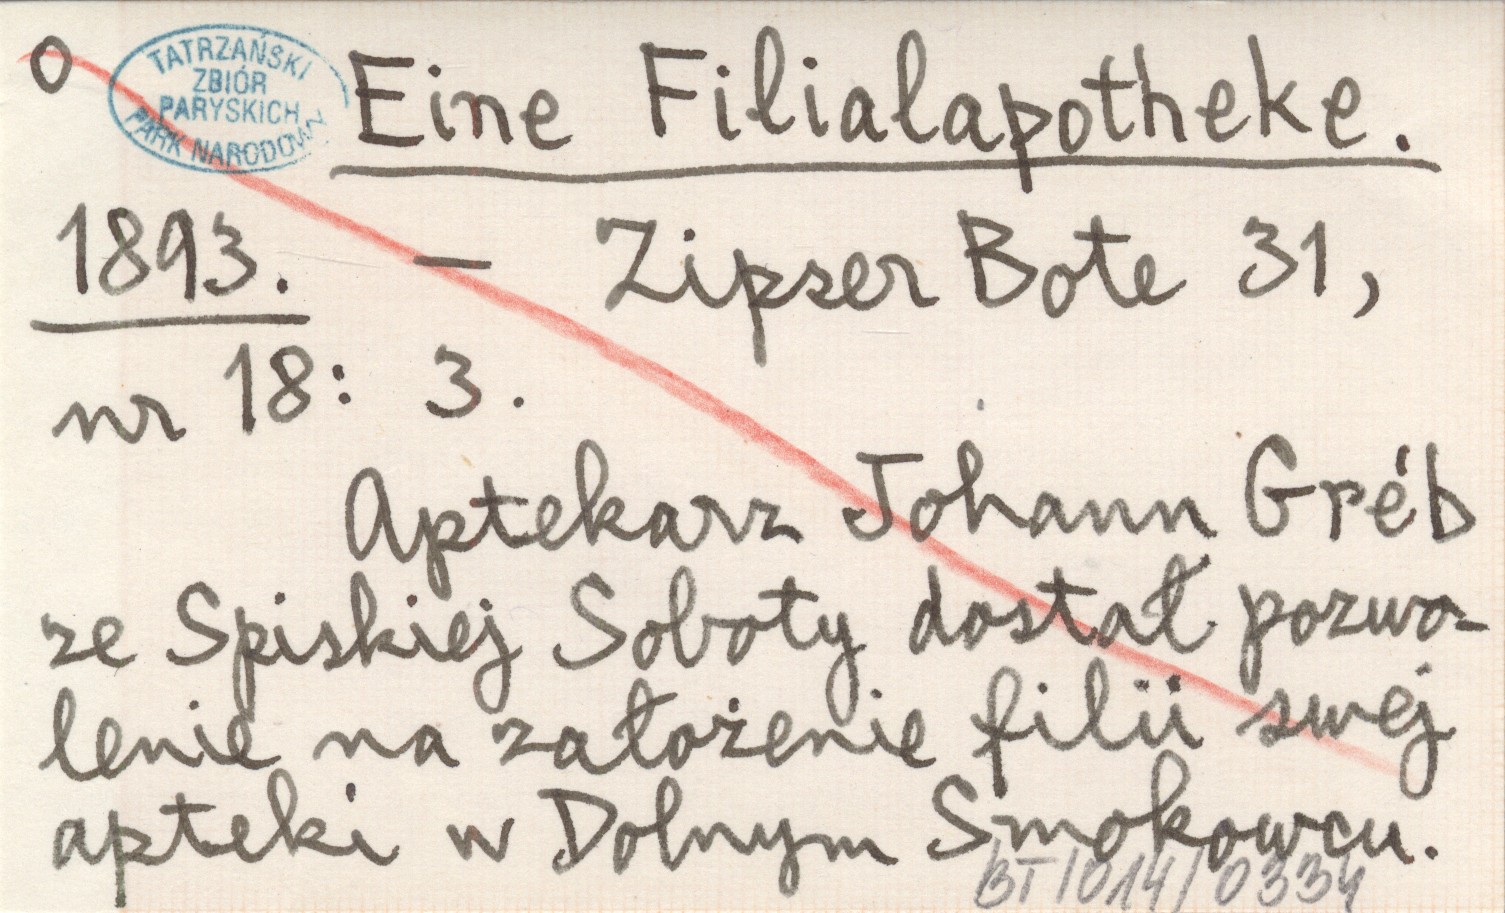 o Eine Filialapotheke.
TATRZAŃSKI
ZBIÓR
PARYSKICH
PARK NARODOWY
1893. – Zipser Bote 31,
nr 18: 3.
Aptekarz Johann Gréb
ze Spiskiej Soboty dostał pozwo-
lenie na założenie filii swej
apteki w Dolnym Smokowcu.
BT/014/0334